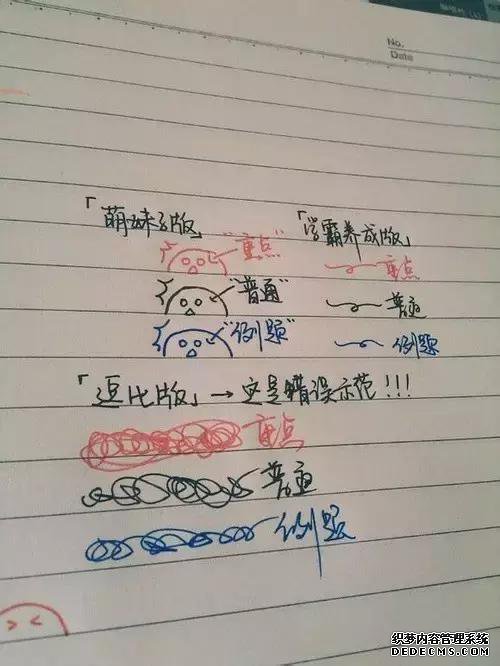 No.
Date
「萌妹子版」 「学霸养成版」
"重点" 重点
"普通" 普通
"例题" 例题
「逗比版」→这是错误示范!!!
重点
普通
例题
> <
织梦内容管理系统
DEDECMS.COM